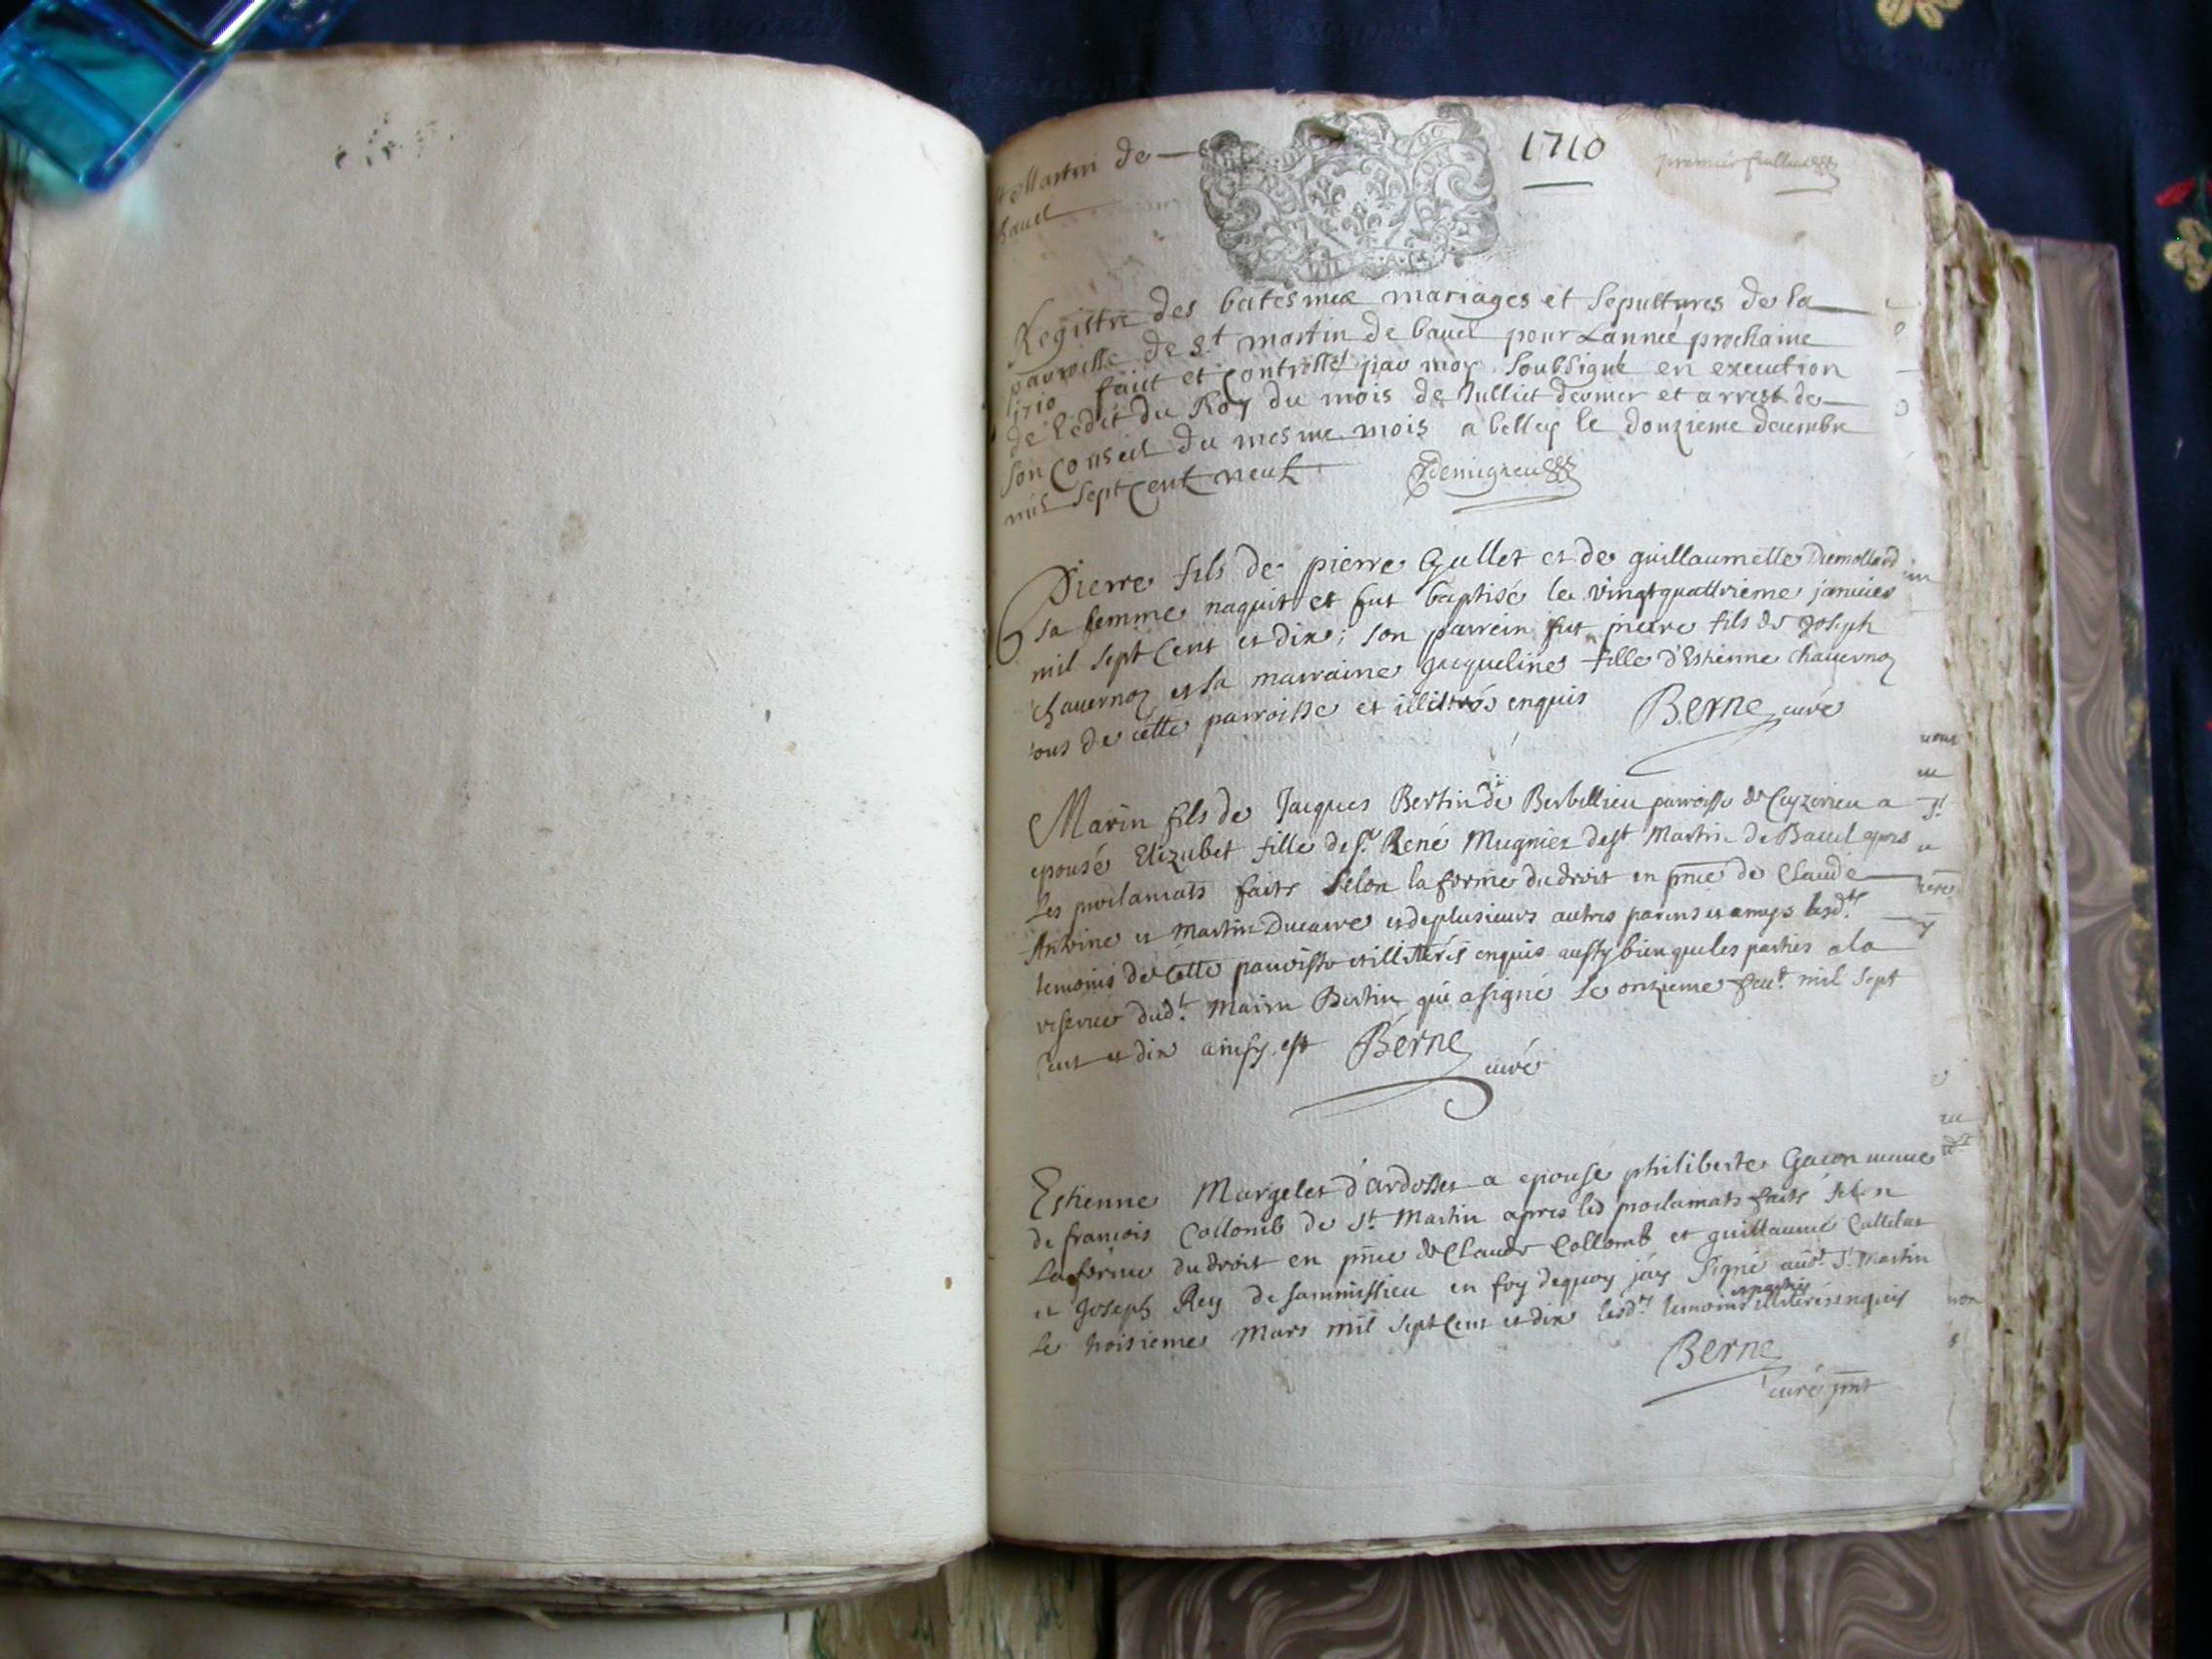 St Martin de
bauel
1710
premier feuillet
Registre des batesmes mariages et sepultures de la
parroisse de St martin de bauel pour Lannée prochaine
1710 faict et controllé par moy soubsigné en execution
de ledit du Roy du mois de Julliet dernier et arrest de
son Conseil du mesme mois a belley le douzieme decembre
mil sept cent neuf
Pierre fils de pierre Gullet et de guillaumette Dumollard
sa femme naquit et fut baptisé le vingtquattrieme januier
mil sept cent et dix; son parrein fut pierre fils de Joseph
chauernoz et sa marraine Jacqueline fille d'Estienne chauernoz
tous de cette parroisse et illitérés enquis Berne curé
Marin fils de Jacques Bertin de Berbillieu parroisse de Ceyzerieu a
epousé Elizabet fille de Sr René Mugnier de St Martin de Bauel apres
Les proclamats faits selon la forme du droit en pnce de Claude
Antoine et Martin Ducarre et de plusieurs autres parens et amys lesdts
temoins de cette parroisse et illitérés enquis aussy bien que les parties a la
reserue dudt Marin Bertin qui a signé le onzieme feur mil sept
cent et dix ainsy est Berne
curé
Estienne Margelet d'ardosset a epousé philiberte Gacon
de francois Collomb de St Martin apres les proclamats faits selon
La forme du droit en pnce de Claude Collomb et guillaume
et Joseph Rey de sammissieu en foy dequoy jay signé audt St Martin
et parties
Le troisieme Mars mil sept cent et dix lesdts temoins illiterés enquis
Berne
curé pnt